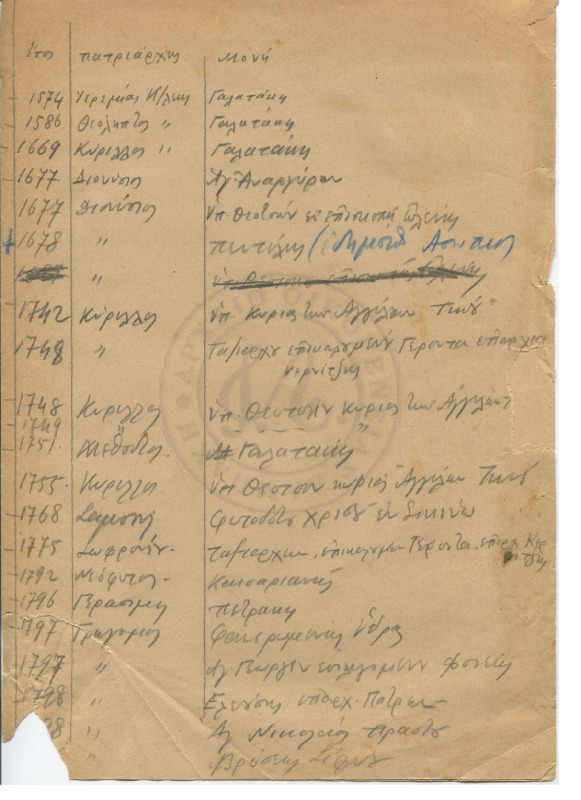 έτος πατριάρχης Μονή
1574 Ιερεμίας Γαλατάκη
1586 Θεόληπτος " Γαλατάκη
1669 Κύριλλος " Γαλατάκη
1677 Διονύσιος Αγ. Αναργύρων
1677 Διονύσιος Υπ. Θεοτόκου εν επισκοπή
1678 " Πεντέλης
"
1742 Κύριλλος Υπ. Κυρίας των Αγγέλων Τήνου
1748 " Ταξιάρχου επικαλουμένου Γέροντα επαρχία
κερνίτζης
1748 Κύριλλος Υπ. Θεοτόκου Κυρίας των Αγγέλων
1749 "
1751 Μεθόδιος Γαλατάκη
1755 Κύριλλος Υπ. Θεοτόκου κυρίας Αγγέλων Τήνου
1768 Σαμουήλ Χριστού εν Σικίνω
1775 Σωφρόνιος Ταξιαρχών επικαλουμεν Γέροντα επαρχ.
1792 Νεόφυτος Καισαριανής
1796 Γεράσιμος Πετράκη
1797 Γρηγόριος Φανερωμένης Ύδρας
1797 " Αγ. Γεωργίου επιλεγομένου
1798 " Ελεούσης επαρχ. Πατρών
" Αγ. Νικολάου
" Βρύσης Σίφνου